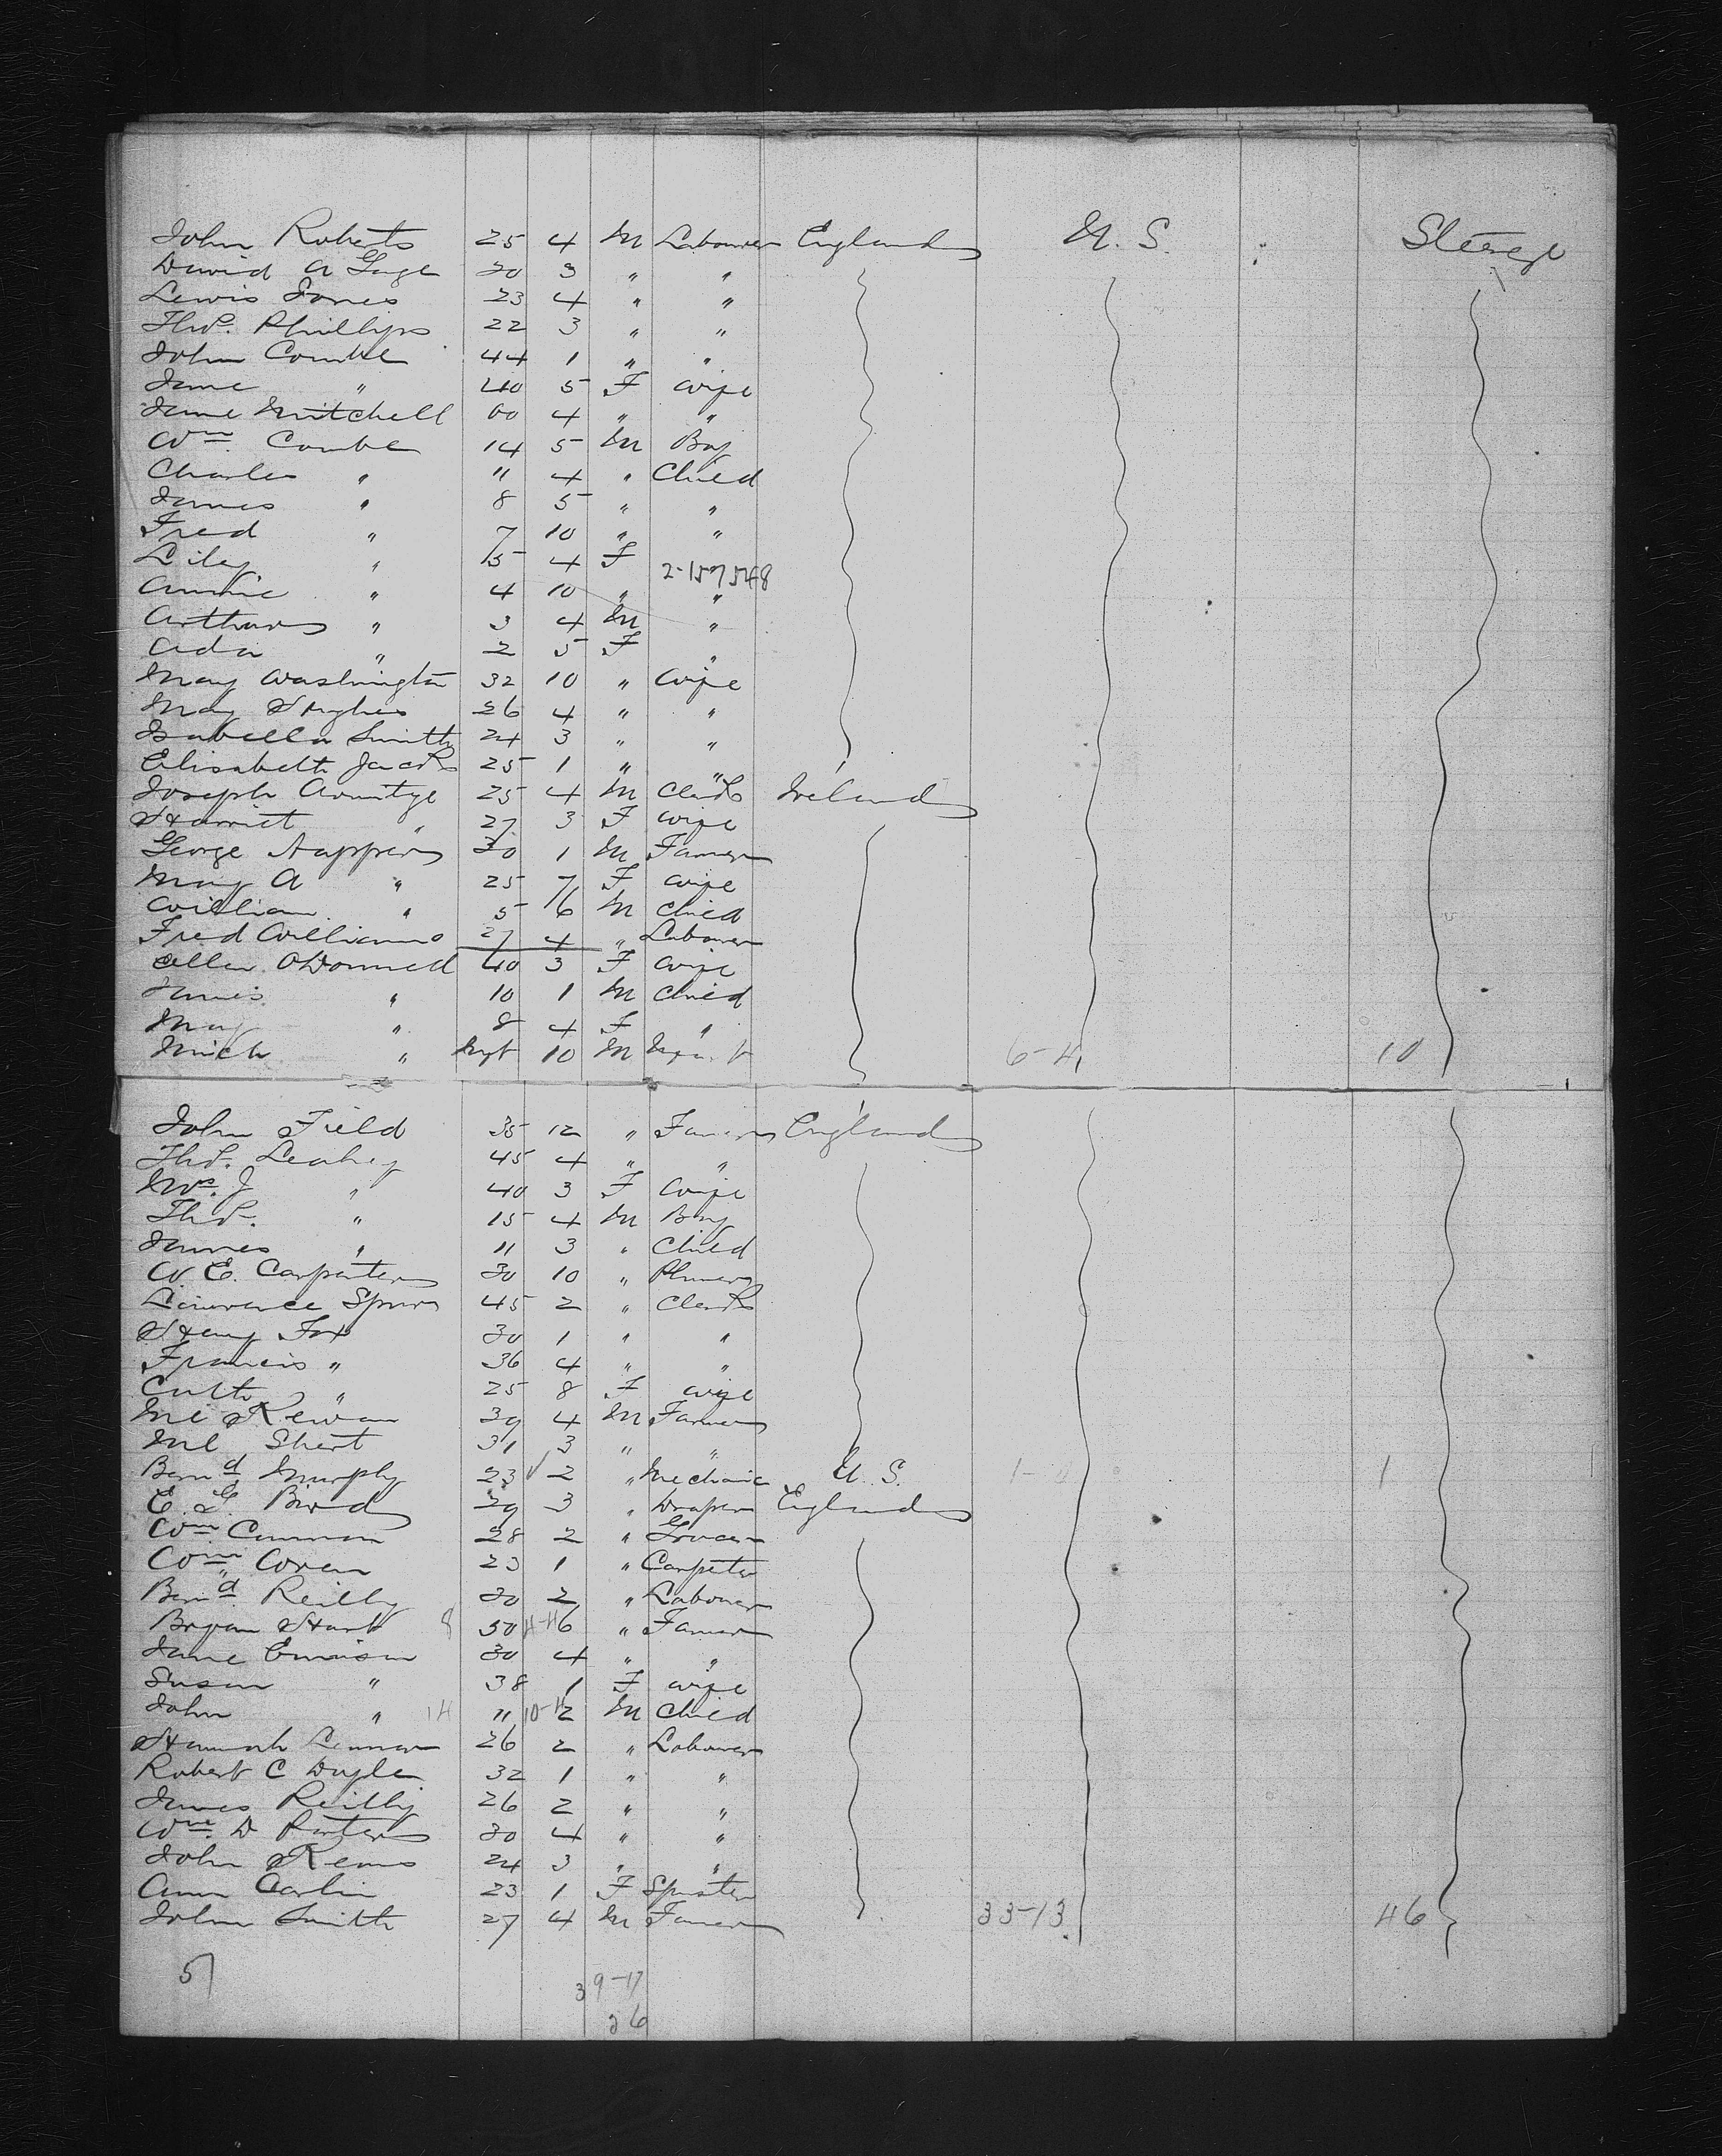 John Roberts 25 4 M Labourer England U.S. Steerge
David A Gage 20 3 " "
Lewis Jones 23 4 " "
Thos. Phillips 22 3 " "
John Combe 44 1 " "
Jane " 40 5 F Wife
Jane Mitchell 60 4 " "
Wm Combe 14 5 M Boy
Charles " 11 4 " Child
James " 8 5 " "
Fred " 7 10 " "
Lily " 5 4 F 2-157548
Annie " 4 10 " "
Arthur " 3 4 M "
Ada " 2 5 F "
May Washington 32 10 " Wife
May Hughes 26 4 " "
Isabella Smith 24 3 " "
Elisabeth Jacks 25 1 " "
Joseph Armitge 25 4 M Clerk Ireland
Harriet " 27 3 F Wife
George Napper 30 1 M Farmer
May A " 25 7 F Wife
William " 5 6 M Child
Fred Williams 27 4 " Labourer
Ellen ODonnell 40 3 F Wife
James " 10 1 M Child
May " 8 4 F "
Mich " Inft 10 M Infant 6-4 10
John Field 35 12 " Farmer England
Thos. Leahey 45 4 " "
Mrs. J " 40 3 F Wife
Thos. " 15 4 M Boy
James " 11 3 " Child
W. E. Carpenter 30 10 "
Lawrence Spurs 45 2 " Clerk
Henry Fox 30 1 " "
Francis " 36 4 " "
" 25 8 F Wife
Mc Kewan 39 4 M Farmer
Ml Short 31 3 " "
Bernd Murphy 23 2 " Mechanic U.S. 1-0 1
E. G. Bird 29 3 " Draper England
Wm Cannon 28 2 " Grocer
Wm Coren 23 1 " Carpeter
Bernd Reilly 30 2 " Labourer
Bryan Hart 8 50 4-4 6 " Farmer
Jane Emison 30 4 " "
Susan " 38 1 F Wife
John " 14 11 10-4 2 M Child
Hannah Lennon 26 2 " Labourer
Robert C Doyle 32 1 " "
James Reilly 26 2 " "
Wm. D Porter 30 4 " "
John Kerns 24 3 " "
Ann Carlin 23 1 F Spinster
John Smith 27 4 M Farmer 33-13 46
57
39-17
56